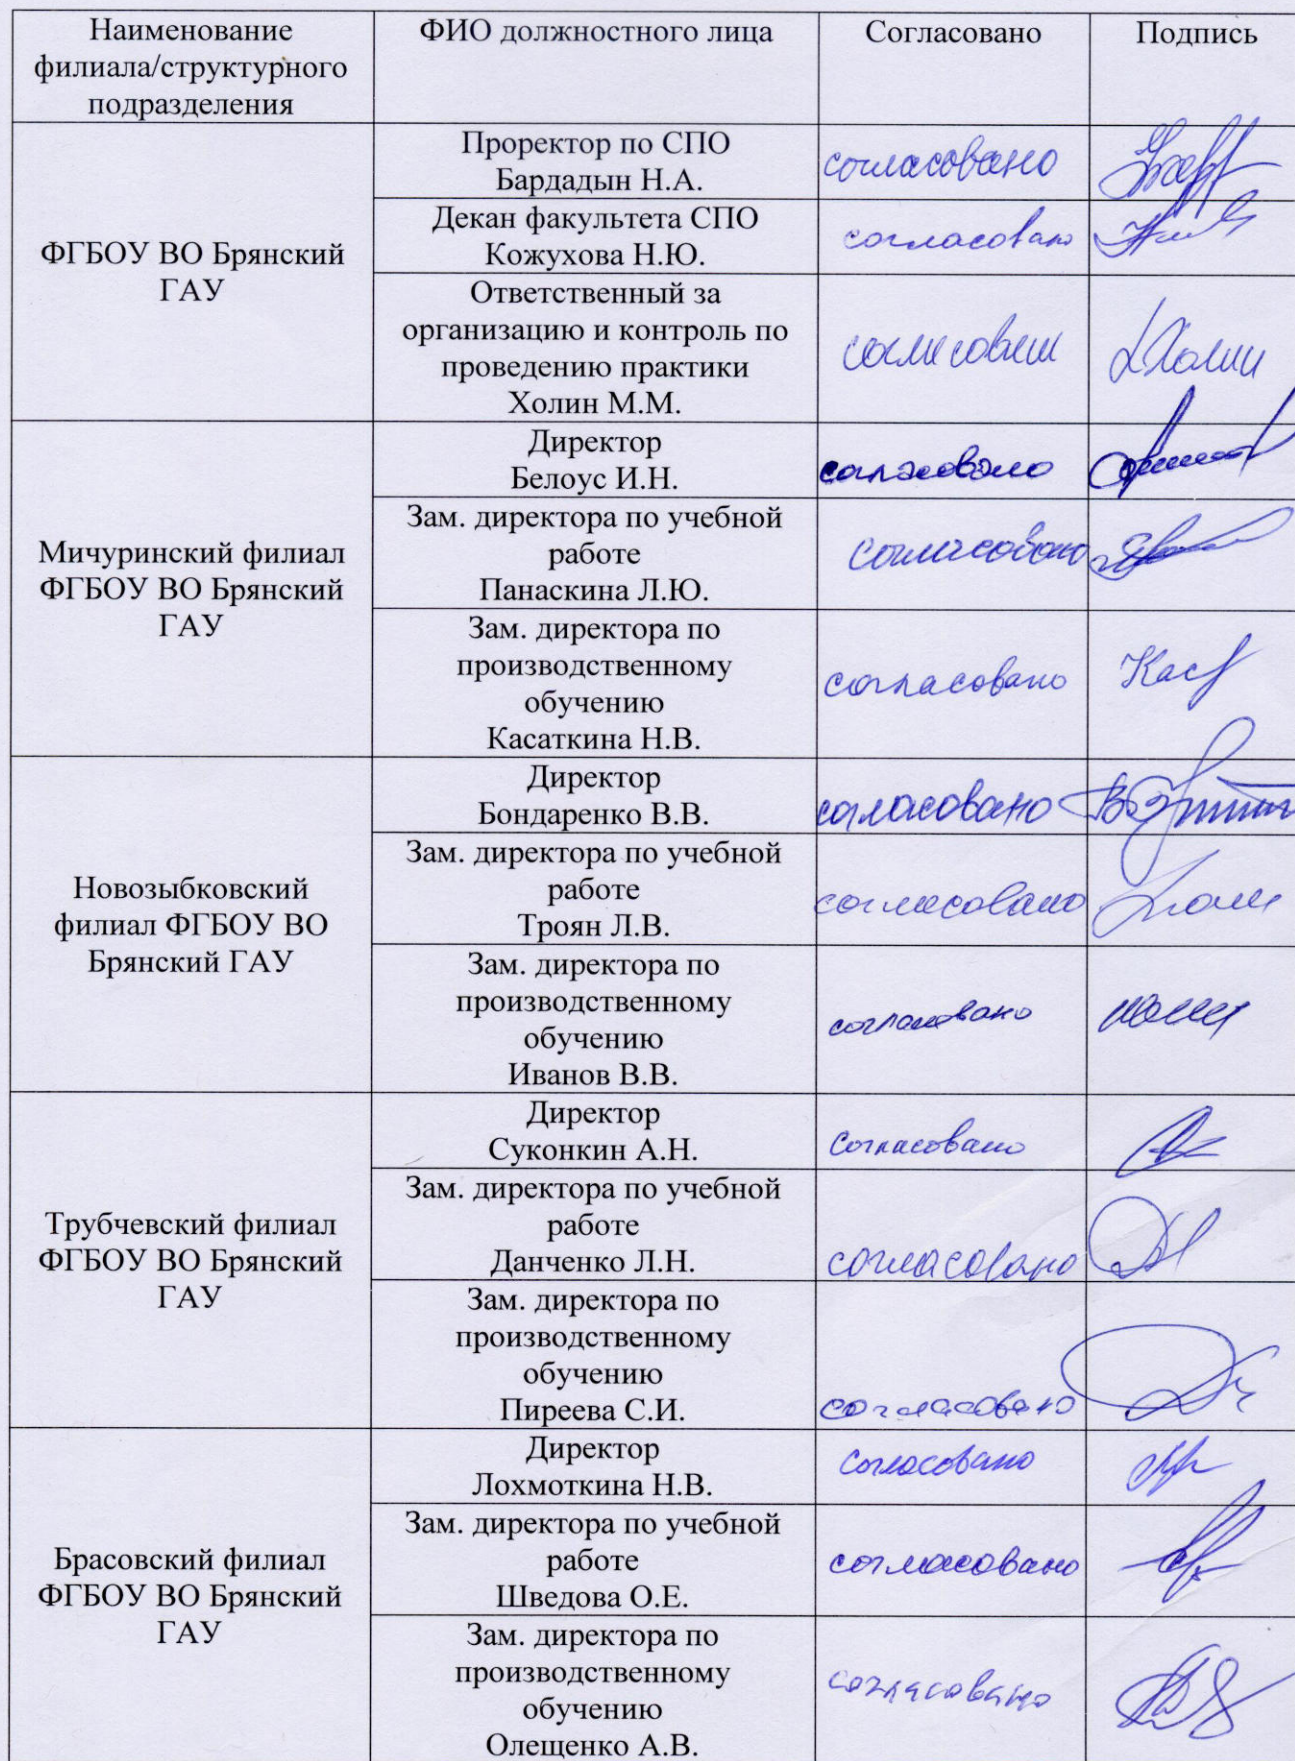 Наименование
филиала/структурного
подразделения
ФИО должностного лица
Согласовано
Подпись
ФГБОУ ВО Брянский
ГАУ
Проректор по СПО
Бардадын Н.А.
согласовано
Декан факультета СПО
Кожухова Н.Ю.
согласовано
Ответственный за
организацию и контроль по
проведению практики
Холин М.М.
согласовано
Мичуринский филиал
ФГБОУ ВО Брянский
ГАУ
Директор
Белоус И.Н.
согласовано
Зам. директора по учебной
работе
Панаскина Л.Ю.
согласовано
Зам. директора по
производственному
обучению
Касаткина Н.В.
согласовано
Новозыбковский
филиал ФГБОУ ВО
Брянский ГАУ
Директор
Бондаренко В.В.
согласовано
Зам. директора по учебной
работе
Троян Л.В.
согласовано
Зам. директора по
производственному
обучению
Иванов В.В.
согласовано
Трубчевский филиал
ФГБОУ ВО Брянский
ГАУ
Директор
Суконкин А.Н.
согласовано
Зам. директора по учебной
работе
Данченко Л.Н.
согласовано
Зам. директора по
производственному
обучению
Пиреева С.И.
согласовано
Брасовский филиал
ФГБОУ ВО Брянский
ГАУ
Директор
Лохмоткина Н.В.
согласовано
Зам. директора по учебной
работе
Шведова О.Е.
согласовано
Зам. директора по
производственному
обучению
Олещенко А.В.
согласовано